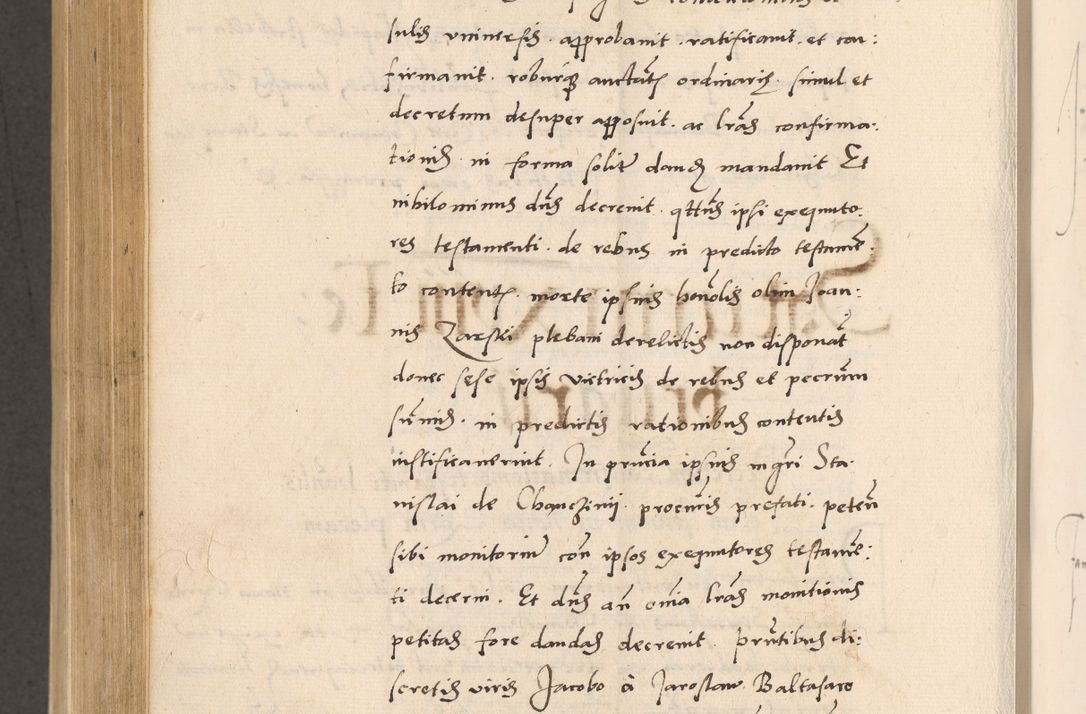 sulis vniuersis . approbauit . ratificauit . et con:
firmauit . roburq3 auctāte ordinariā . simul et
decretum desuper apposuit . ac lrās confirma:
tionis . in forma solitā dandas mandauit Et
nihilominus dn̄s decreuit . q̄tt̄us ipsi exequuto:
res testamenti . de rebus in predicto testamē:
to contentis . morte ipsius honōlis olim Joan:
nis Zarski plebani derelictis non disponāt
donec sese ipsis victricis de rebus et pecuniarum
sūmis . in predictis rationibus contentis
iustificauerint . In pn̄cia ipsius mgrī Sta:
nislai de Chanczinij . procūris prefati . petēn
sibi monitoriū con̄ ipsos exequutores testamē:
ti decerni . Et dn̄s an̄ om̄ia lrās monitionis
petitas fore dandas decreuit . Pn̄tibus di:
scretis viris Jacobo a Jaroslaw . Baltasare